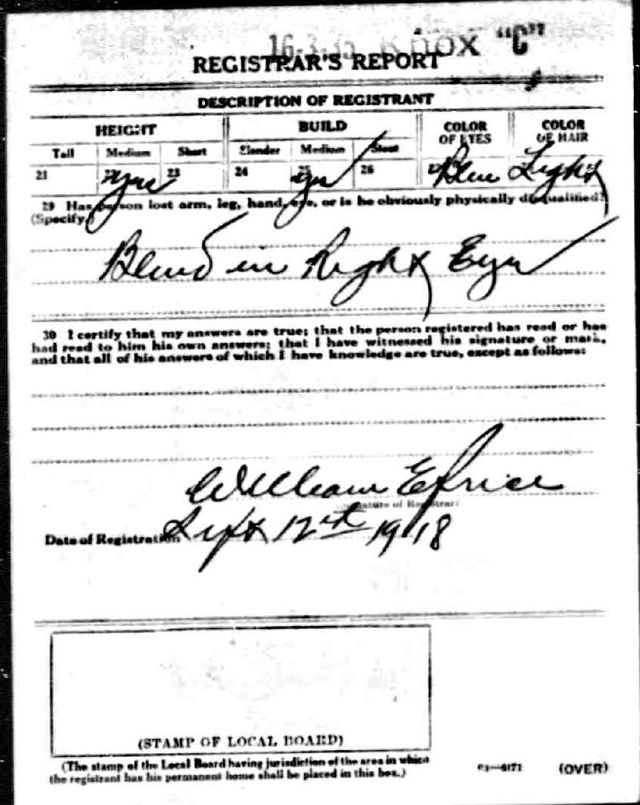 16-3-35 Knox "C"
REGISTRAR'S REPORT
DESCRIPTION OF REGISTRANT
HEIGHT BUILD COLOR OF EYES COLOR OF HAIR
Tall Medium Short Slender Medium Stout
21 22 yes 23 24 25 yes 26 27 Blue Light
29 Has person lost arm, leg, hand, eye, or is he obviously physically disqualified?
(Specify.)
Blind in Right Eye
30 I certify that my answers are true; that the person registered has read or has
had read to him his own answers; that I have witnessed his signature or mark,
and that all of his answers of which I have knowledge are true, except as follows:
William E Price
(Signature of Registrar)
Date of Registration Sept 12th 1918
(STAMP OF LOCAL BOARD)
(The stamp of the Local Board having jurisdiction of the area in which
the registrant has his permanent home shall be placed in this box.)
03—6171 (OVER)